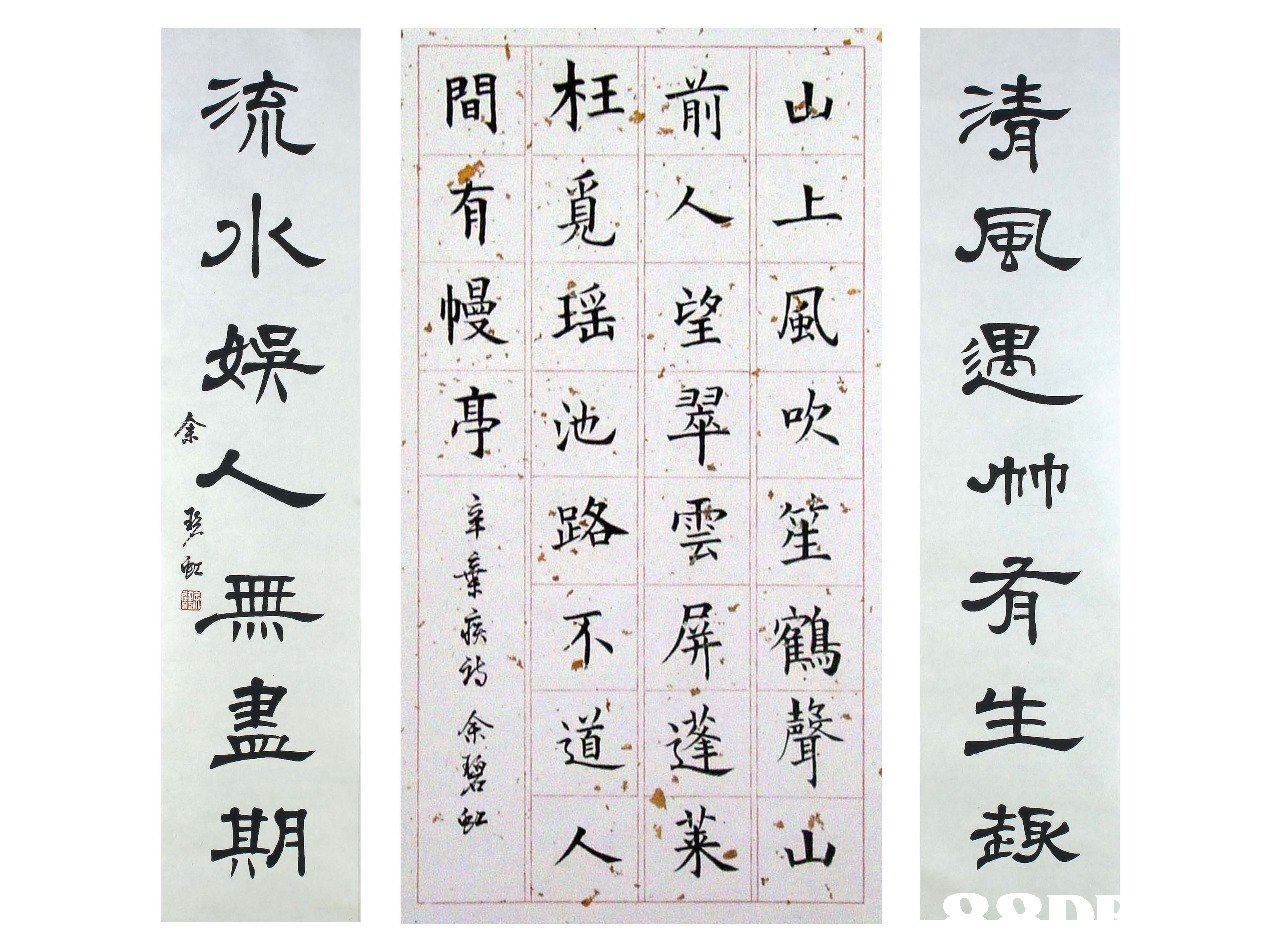 清風遇竹有生趣
山上風吹笙鶴聲山
前人望翠雲屏蓬莱
枉覓瑶池路不道人
間有幔亭
辛棄疾詩 余碧虹
流水娛人無盡期
余碧虹